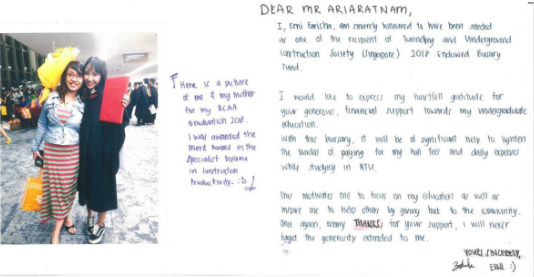 DEAR MR ARIARATNAM,
I, Erni Farisha, am sincerely honoured to have been selected
as one of the recipient of Tunneling and Underground
Construction Society (Singapore) 2018 Endowed Bursary
Fund.
I would like to express my heartfelt gratitude for
your generous, financial support towards my undergraduate
education.
With this bursary, it will be of significant help to lighten
the burden of paying for my hall fees and daily expenses
while studying in NTU.
This motivates me to focus on my education as well as
inspire me to help others by giving back to the community.
Once again, many THANKS for your support, I will never
forget the generosity extended to me.
YOURS SINCERELY,
ERNI :)
Here is a picture
of me & my mother
for my BCAA
Graduation 2018.
I was awarded the
merit award in the
Specialist Diploma
in Construction
Productivity. :D